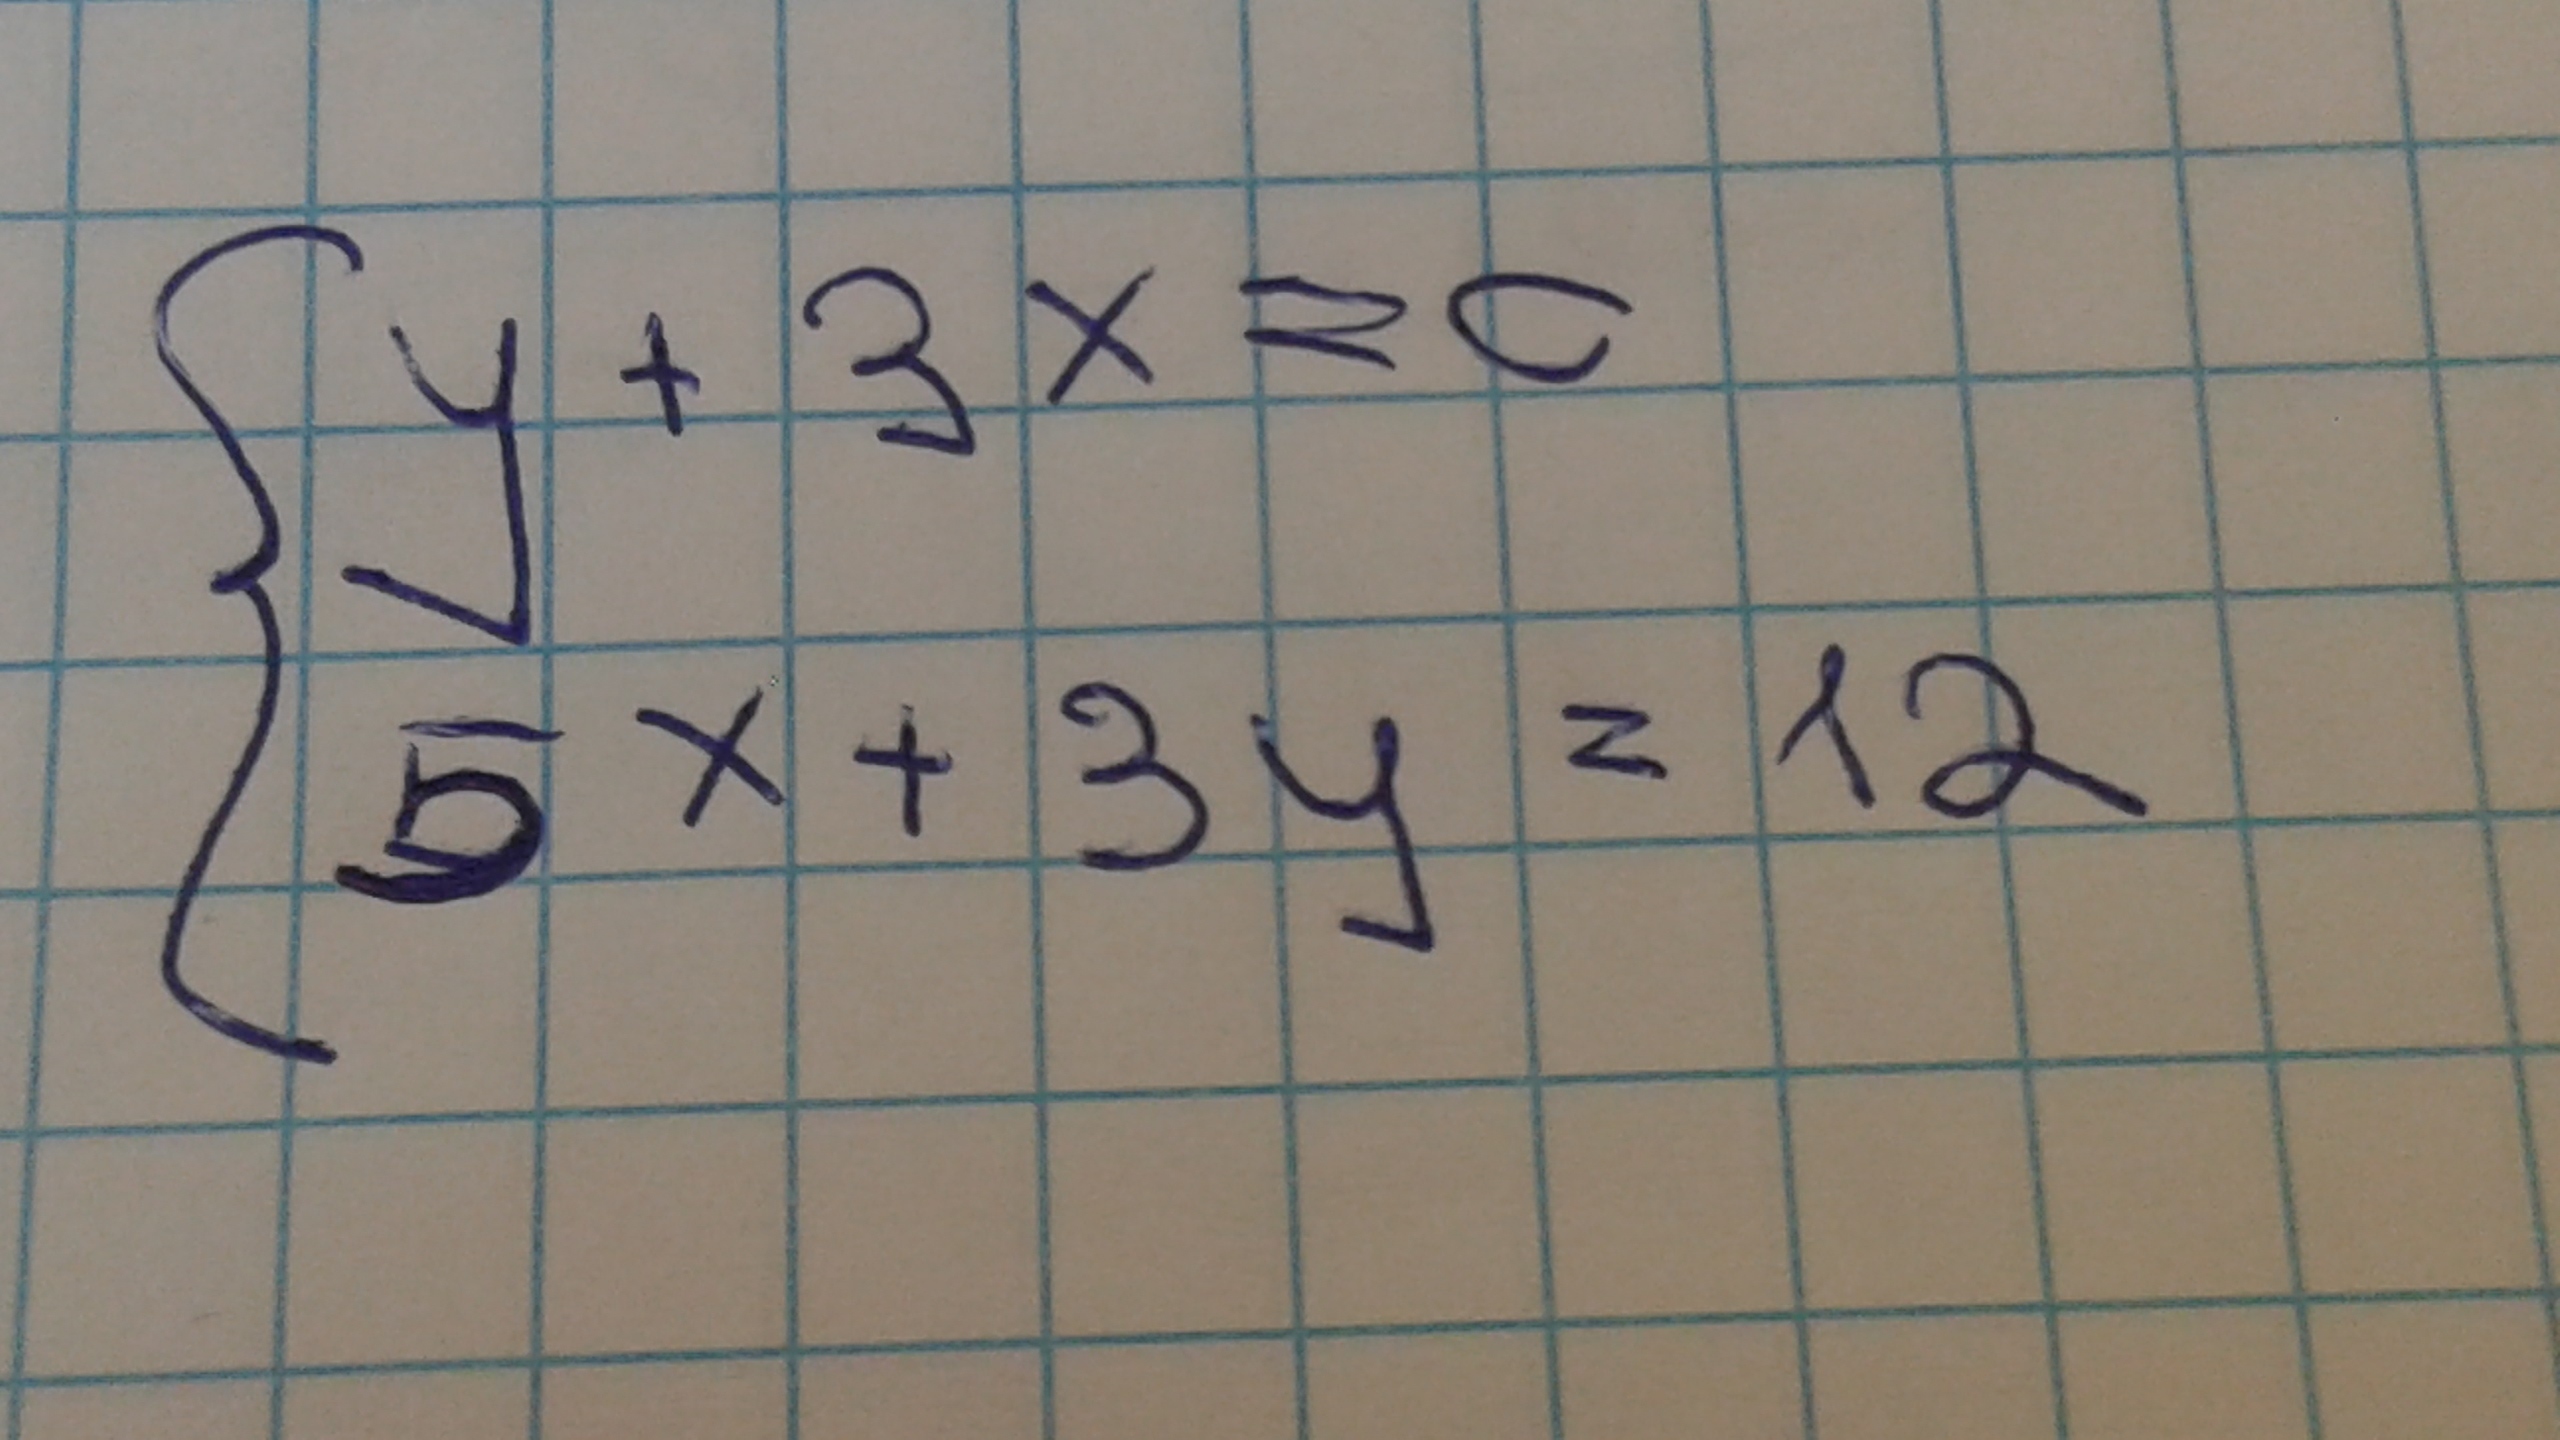 y + 3x = 0
5x + 3y = 12